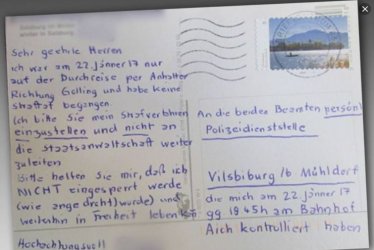 Salzburg im Winter
winter in Salzburg
Sehr geehrte Herren
ich war am 22. Jänner 17 nur
auf der Durchreise per Anhalter
Richtung Golling und habe keine
straftat begangen.
Ich bitte Sie mein Strafverfahren
einzustellen und nicht an
die Staatsanwaltschaft weiter
zuleiten
Bitte helfen Sie mir, daß ich
NICHT eingesperrt werde
(wie angedroht) wurde) und
weiterhin in Freiheit leben
Hochachtungsvoll
An die beiden Beamten persönl
Polizeidienststelle
Vilsbiburg /b Mühldorf
die mich am 22 Jänner 17
gg 19 45h am Bahnhof
Aich kontrolliert haben